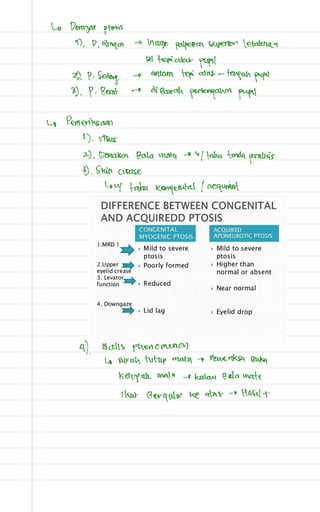 ↳ Derajat ptosis
1). P. Ringan → margo palpebra superior letaknya
di tepi atas pupil
2). P. Sedang → antara tepi atas - tengah pupil
3). P. Berat → di Bawah pertengahan pupil
↳ Pemeriksaan
1). Visus
2). Gerakan Bola mata → u/ tahu tanda paralisis
3). Skin crease
↳ u/ tahu kongenital / acquired
DIFFERENCE BETWEEN CONGENITAL
AND ACQUIREDD PTOSIS
CONGENITAL MYOGENIC PTOSIS
ACQUIRED APONEUROTIC PTOSIS
1.MRD 1
Mild to severe ptosis
Mild to severe ptosis
2.Upper eyelid crease
Poorly formed
Higher than normal or absent
3. Levator function
Reduced
Near normal
4. Downgaze
Lid lag
Eyelid drop
4). Bells phenomenon
↳ Suruh tutup mata → Pemeriksa Buka
kelopak mata → kalau Bola mata
lihat Bergulir ke atas → Hasil +